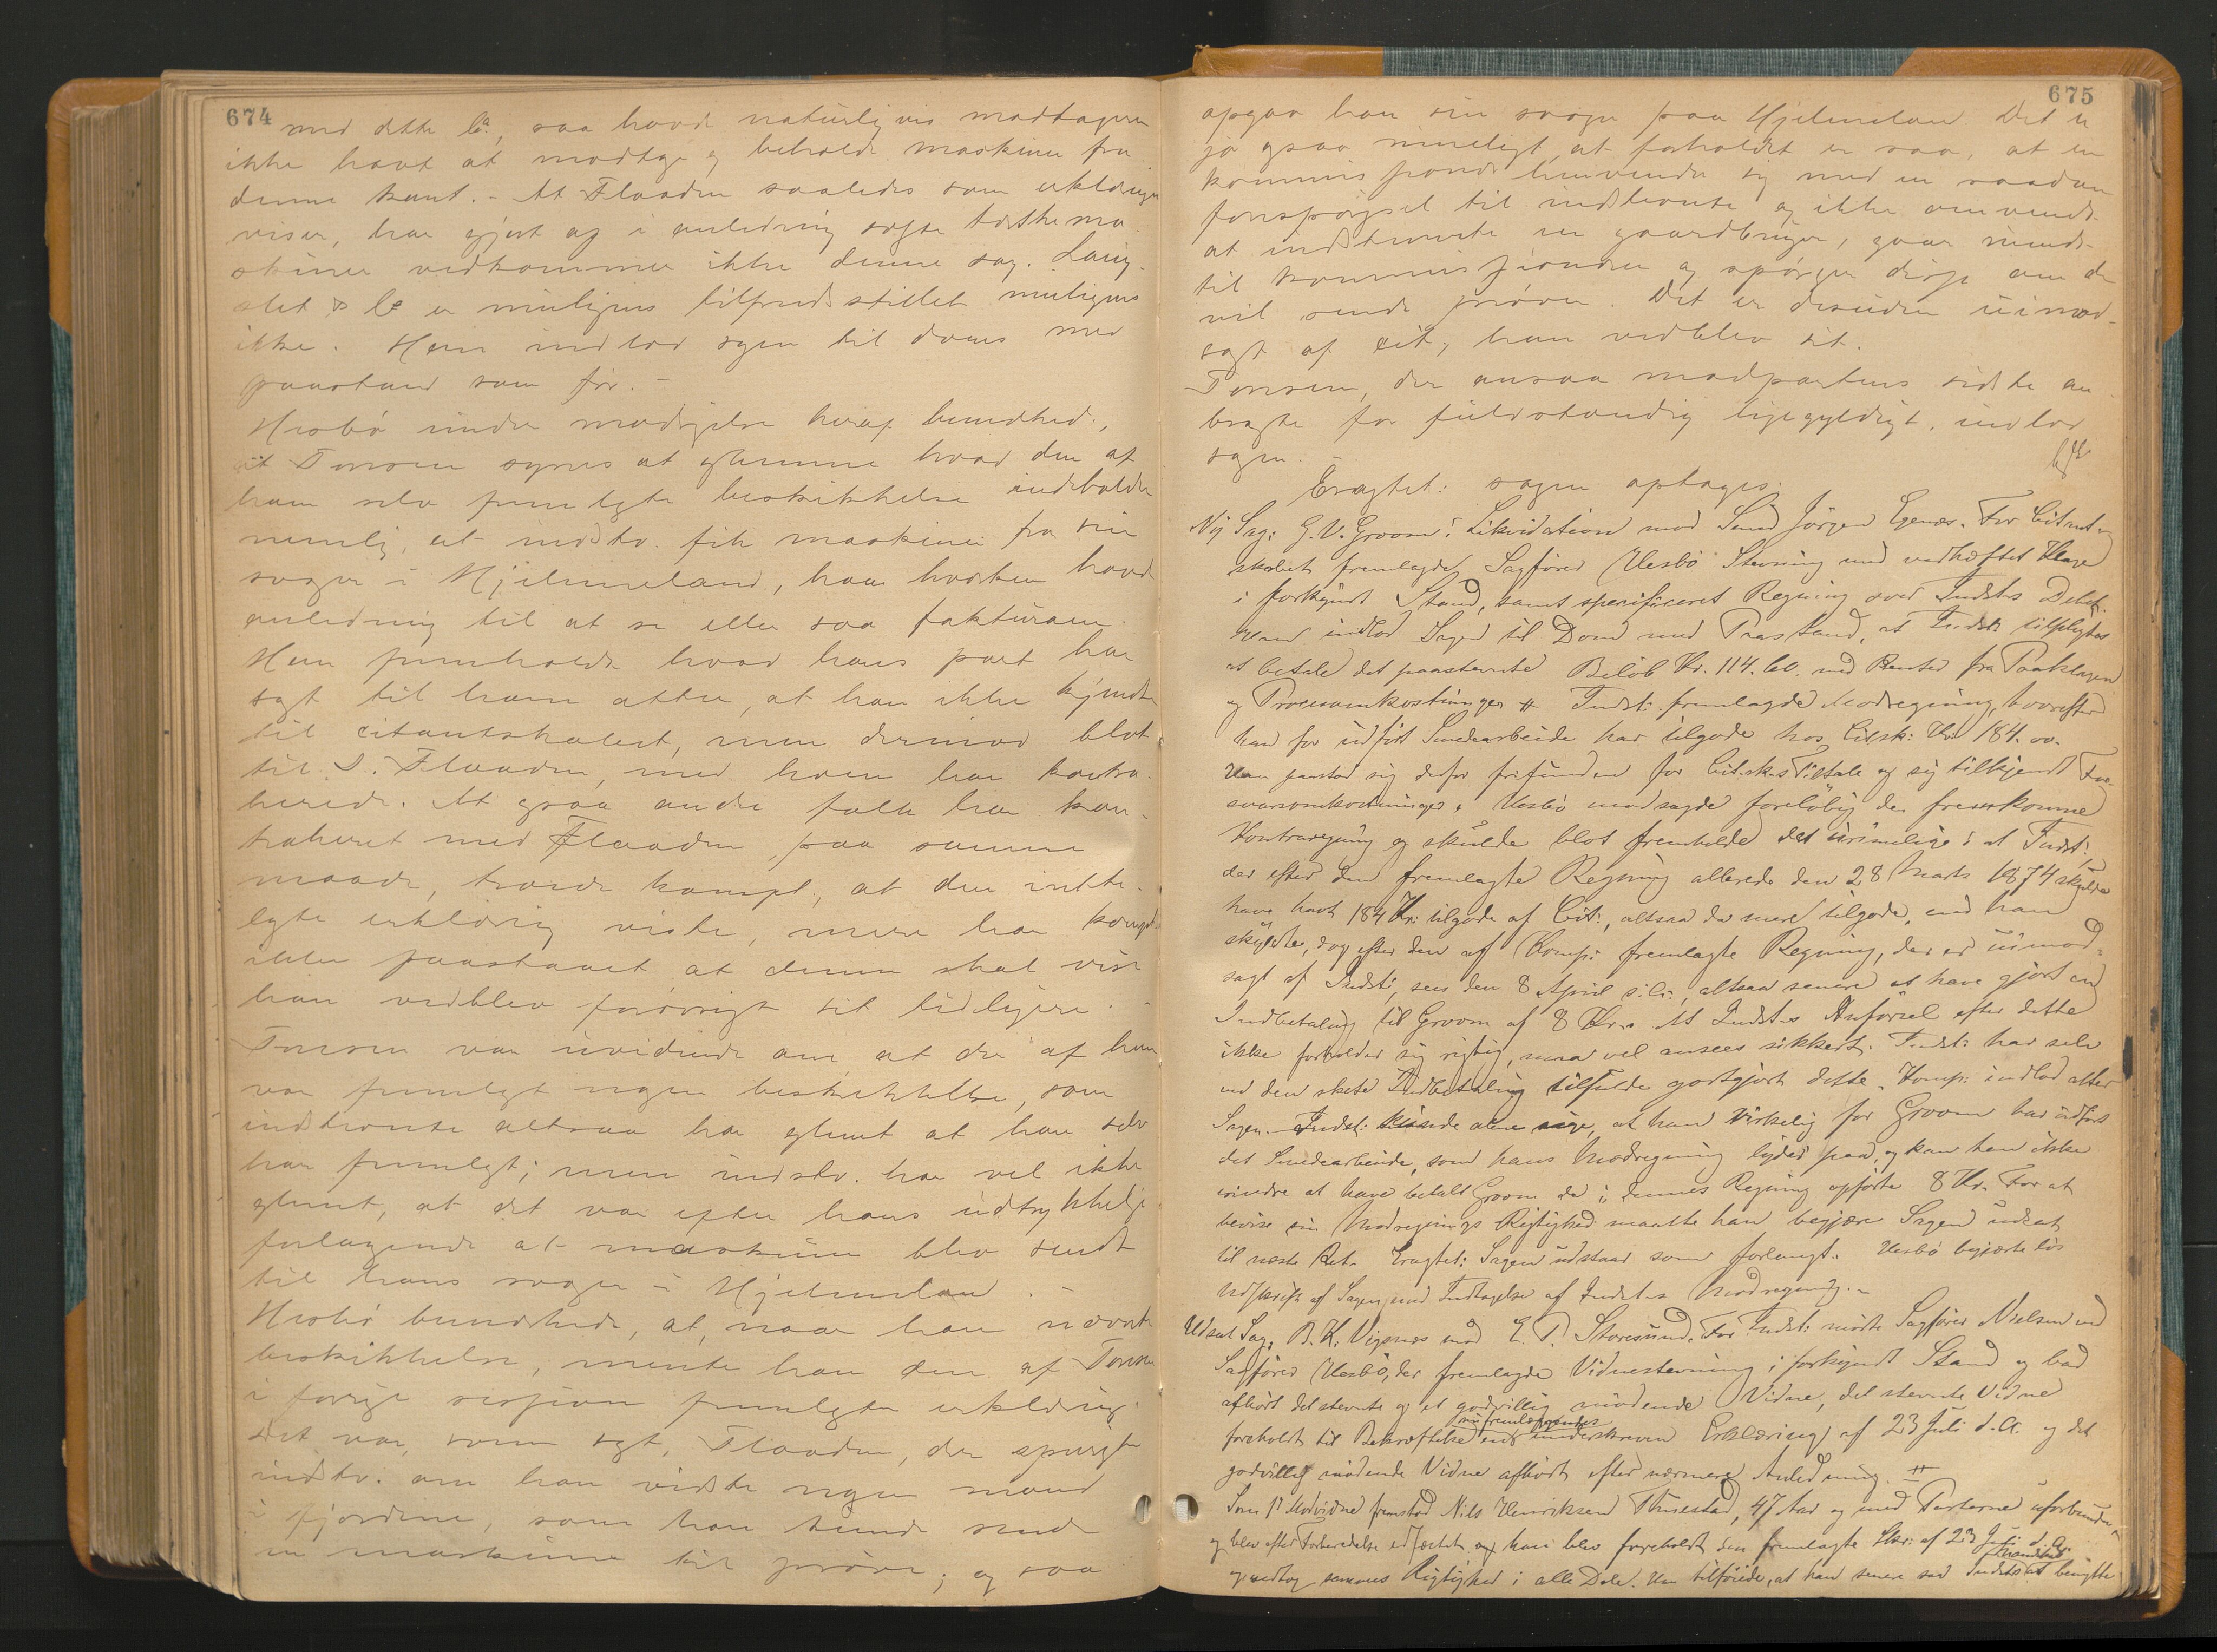 674
med dette co., saa havde naturligvis modtageren
ikke havt at modtage og beholde maskinen fra
denne kant. - At Flaaden saaledes som erklæringen
viser, har gjort og i anledning solgte tærskema-
skiner vedkommer ikke denne sag. Lang-
slet & Co er muligens tilfredsstillet muligens
ikke. Han indlod sagen til doms med
paastand som før. -
Hesbø under modsigelse heraf bemærked.,
at Tonsen synes at glemme hvad den af
ham selv fremlagte beskikkelse indeholder
nemlig, at indstv. fik maskinen fra sin
svoger i Hjelmeland, han hverken havde
anledning til at se eller saa fakturaen.
Han fremholdt hvad hans part har
sagt til ham atter, at han ikke kjendte
til citantskabet, men derimod blot
til S. Flaaden, med hvem han kontra-
herede. At ogsaa andre folk har kon-
traheret med Flaaden paa samme
maade, troede kompt., at den indta-
gte erklæring viste, mere har kompt.
ikke paastaaet at denne skal vise
han vedblev forøvrigt sit tidligere. -
Tonsen var uvidende om at der af ham
var fremlagt nogen beskikkelse, som
indstevnte altsaa har glemt at han selv
har fremlagt; men indstv. har vel ikke
glemt, at det var efter hans udtrykkelige
forlangende at maskinen blev sendt
til hans svoger i Hjelmeland. -
Hesbø bemærkede, at, naar han nævnte
beskikkelse, mente han den af Tonsen
i forrige session fremlagte erklæring.
Det var, som sagt, Flaaden, der spurgte
indstv. om han vidste nogen mand
i fjordene, som han kunde sende
en maskine til prøve; og saa
675
opgav han sin svoger paa Hjelmeland. Det er
jo ogsaa rimeligt, at forholdet er saa, at en
kommissionær henvender sig med en saadan
forespørgsel til indstevnte og ikke omvendt
at indstevnte en gaardbruger, gaar
til kommissionæren og spørger disse om de
vil sende prøver. Det er desuden uimod-
sagt af cit., han vedblev sit.
Tonsen, der ansaa modpartens sidste an-
bragte for fuldstændig ligegyldigt, indlod
sagen. -
Eragtet: sagen optages.
Ny Sag: G. V. Grooms Likvidation mod Smed Jørgen Egenæs. For Citant-
skabet fremlagde Sagfører Hesbø Stevning med vedhæftet Klage
i forkyndt Stand, samt specificeret Regning over Indsts Debet.
Han indlod Sagen til Dom med Paastand, at Indst: tilpligtes
at betale det paastevnte Beløb Kr. 114.60. med Renter fra Paaklagen
og Procesomkostninger # Indst: fremlagde Modregning, hvorefter
han for udført Smedearbeide har tilgode hos Citsk: Kr. 184.00.
Han paastod sig derfor frifunden for Citsk.s Tiltale og sig tilkjendt For-
svarsomkostninger. Hesbø modsagde foreløbig den fremkomne
Kontraregning og skulde blot fremholde det urimelige i at Indst:
der efter den fremlagte Regning allerede den 28 Marts 1874 skulde
have havt 184 Kr. tilgode af Cit:, altsaa da mere tilgode, end han
skyldte, dog efter den af Komp: fremlagte Regning, der er uimod-
sagt af Indst:, sees den 8 April s.A., altsaa senere at have gjort en
Indbetaling til Groom af 8 Kr. At Indst.s Anførsel efter dette
ikke forholder sig rigtig, maa vel ansees sikkert. Indst: har selv
ved den skete Indbetaling tilfulde godtgjort dette. Komp: indlod atter
Sagen. Indst: kunde alene sige, at han virkelig for Groom har udført
det Smedearbeide, som hans Modregning lyder paa, og kan han ikke
erindre at have betalt Groom de i dennes Regning opførte 8 Kr. For at
bevise sin Modregnings Rigtighed maatte han begjære Sagen udsat
til næste Ret. Eragtet: Sagen udstaar som forlangt. Hesbø begjærte løs
Udskrift af Sagen med Indtagelse af Indst.s Modregning. -
Udsat Sag: B. K. Vignæs mod E. T. Storesund. For Indst: mødte Sagfører Nielsen ved
Sagfører Hesbø, der fremlagde Vidnestevning i forkyndt Stand og bad
afhørt det stevnte og et godvillig mødende Vidne, det stevnte Vidne
foreholdt til Bekræftelse en nu fremlæggendes underskreven Erklæring af 23 Juli d.A. og det
godvillig mødende Vidne afhørt efter nærmere Anledning. #
Som 1ste Modvidne fremstod Nils Henriksen Thuestad, 47 Aar og med Parterne uforbunden
og blev efter Forberedelse edfæstet og han blev foreholdt den fremlagte Erkl: af 23 Juli d.A.
og vedtog sammes Rigtighed i alle Dele. Han tilføiede, at han senere saa Indstes benytte